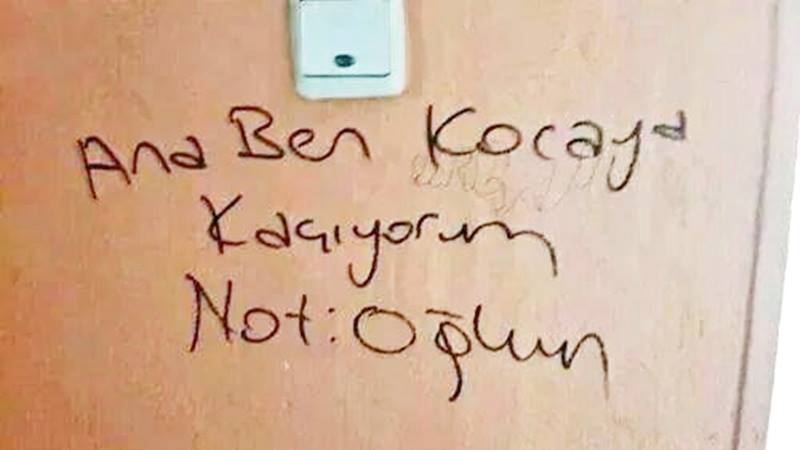 Ana Ben Kocaya
Kaçıyorum
Not: Oğlun